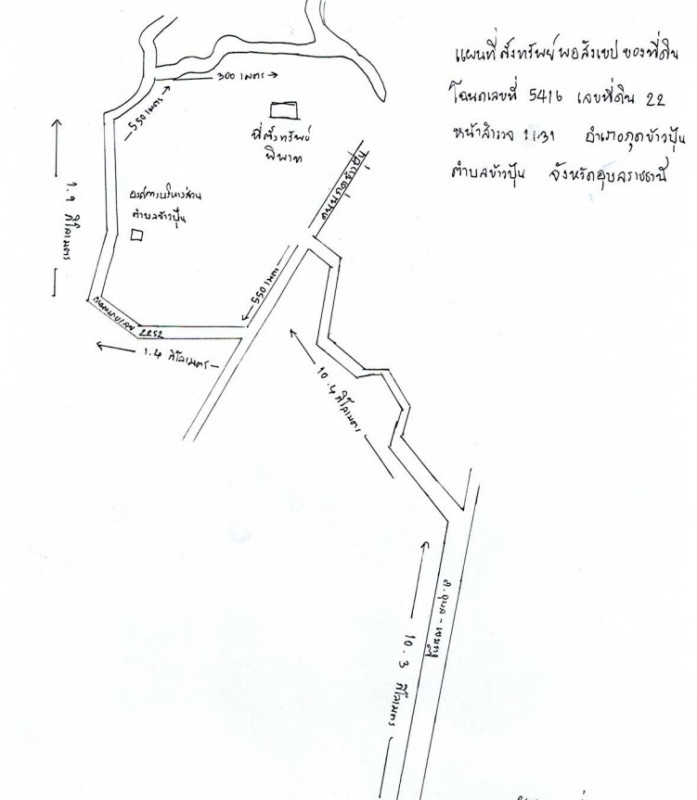 แผนที่ตั้งทรัพย์พอสังเขป ของที่ดิน
โฉนดเลขที่ 5416 เลขที่ดิน 22
หน้าสำรวจ 1131 อำเภอกุดข้าวปุ้น
ตำบลข้าวปุ้น จังหวัดอุบลราชธานี
300 เมตร
550 เมตร
ที่ตั้งทรัพย์
พิพาท
องค์การบริหารส่วน
ตำบลข้าวปุ้น
1.9 กิโลเมตร
550 เมตร
2252
1.4 กิโลเมตร
10.4 กิโลเมตร
10.3 กิโลเมตร